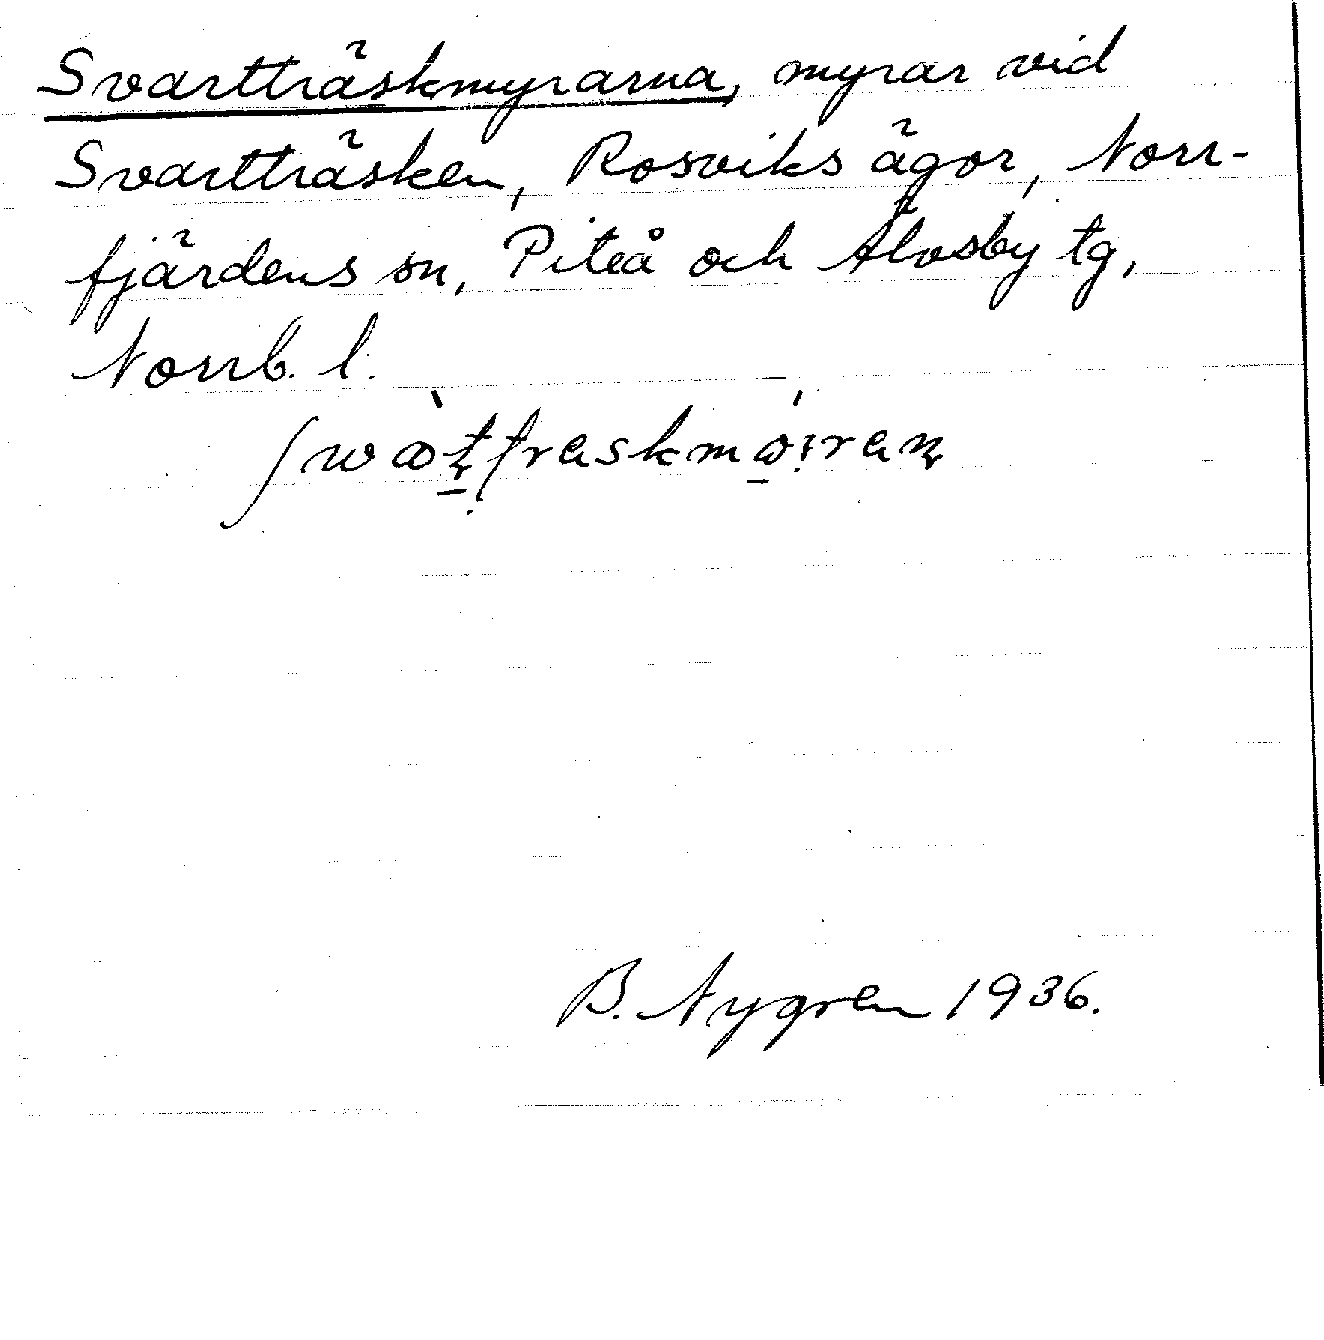 Svartträskmyrarna, myrar vid
Svartträsken, Rosviks ägor, Norr-
fjärdens sn, Piteå och Älvsby tg,
Norrb. l.
B. Nygren 1936.